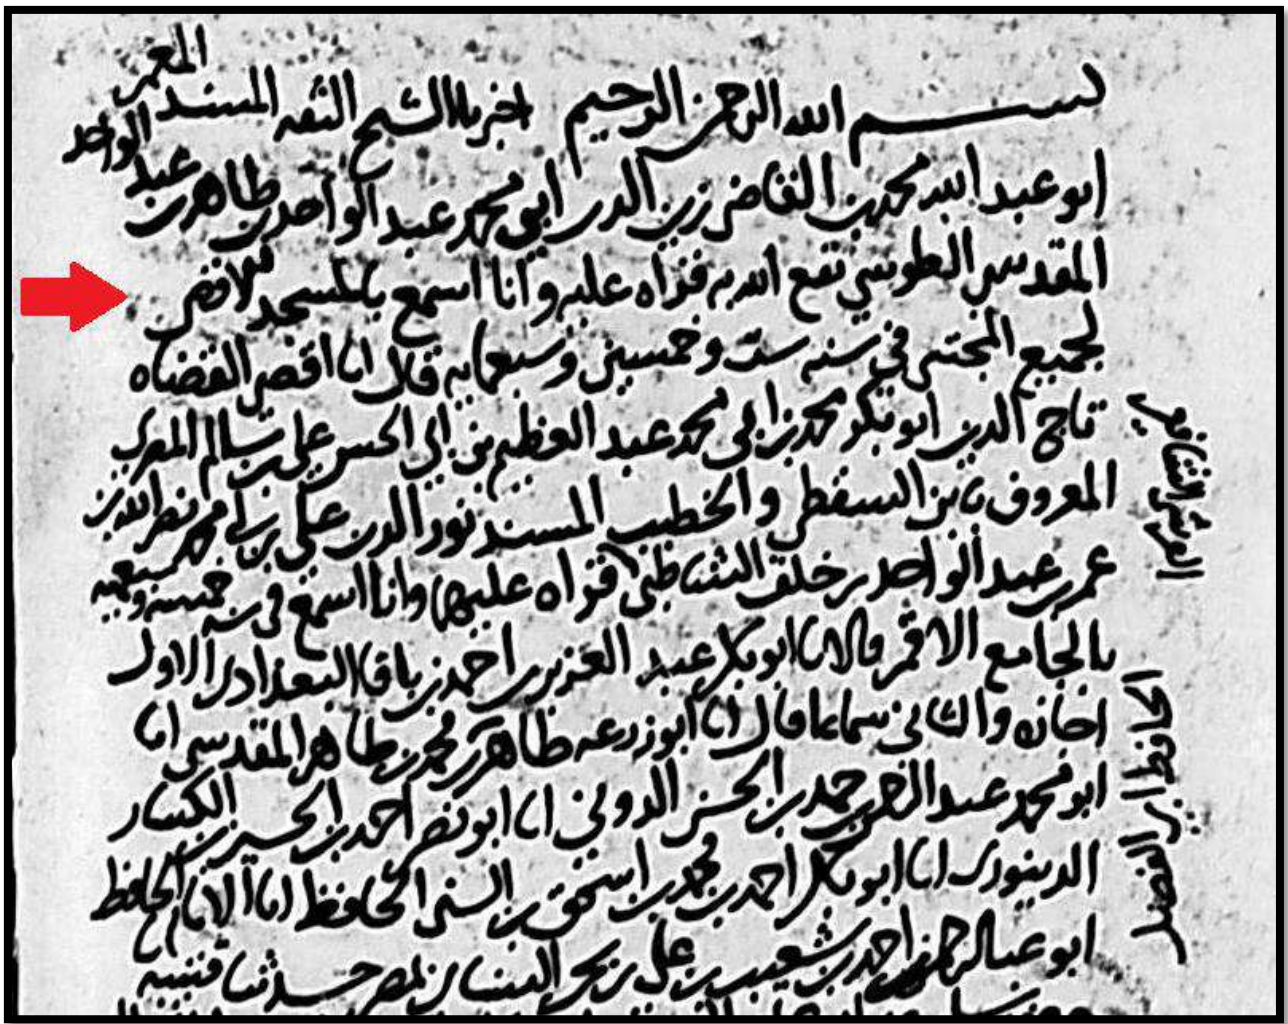 بسم الله الرحمن الرحيم اخبرنا الشيخ الثقه المسند المعمر
ابو عبد الله محمد بن القاضي زين الدين ابي محمد عبد الواحد بن طاهر بن عبد الواحد
المقدسي الطوسي نفع الله به قراه عليه وانا اسمع بالمسجد الاقصى
لجميع المجتبى في سنه ست وخمسين وسبعمايه قال انا اقضى القضاه
تاج الدين ابو بكر محمد بن ابي محمد عبد العظيم بن ابي الحسن علي بن سالم المصري
المعروف بابن السقطي والخطيب المسند نور الدين علي بن نصر الله بن
عمر بن عبد الواحد بن خلف الشاطبي قراه عليهما وانا اسمع في سنه
بالجامع الاقمر قالا انا ابو بكر عبد العزيز بن احمد بن باقا البغدادي الاول
اجازه والثاني سماعا قال انا ابو زرعه طاهر بن محمد بن طاهر المقدسي انا
ابو محمد عبد الرحمن بن حمد بن الحسن الدوني انا ابو نصر احمد بن الحسين الكسار
الدينوري انا ابو بكر احمد بن محمد بن اسحق بن السني الحافظ انا الامام الحافظ
ابو عبد الرحمن احمد بن شعيب بن علي بن بحر النسائي بمصر حدثنا قتيبه
القرشي الشافعي